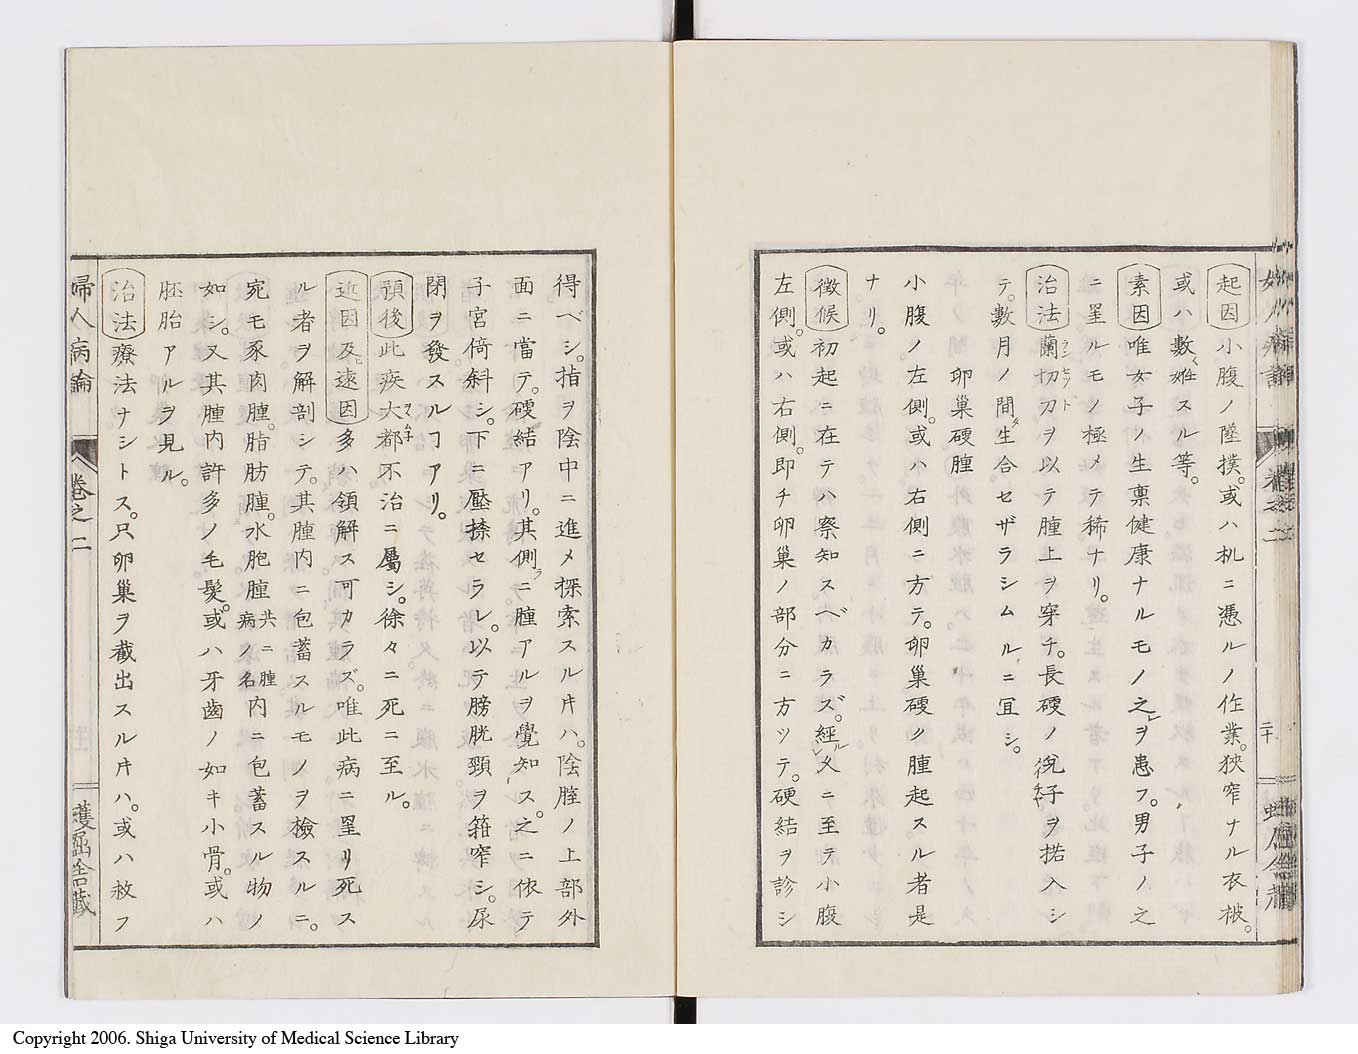 起因小腹ノ墜撲。或ハ机ニ憑ルノ作業。狹窄ナル衣被。
或ハ數〻姙スル等。
素因唯女子ノ生稟健康ナルモノ之ヲ患フ。男子ノ之
ニ罣ルモノ極メテ稀ナリ。
治法蘭切刀ヲ以テ腫上ヲ穿チ。長硬ノ兊子ヲ括入シ
テ。數月ノ間生合セザラシムルニ宜シ。
卵巢硬腫
小腹ノ左側。或ハ右側ニ方テ。卵巢硬ク腫起スル者是
ナリ。
徴候初起ニ在テハ察知スベカラズ。經久ニ至テ小腹
左側。或ハ右側。即チ卵巢ノ部分ニ方ツテ。硬結ヲ診シ
得ベシ。指ヲ陰中ニ進メ探索スル片ハ。陰腟ノ上部外
面ニ當テ。硬結アリ。其側ニ腫アルヲ覺知ス。之ニ依テ
子宮倚斜シ。下ニ壓捺セラレ。以テ膀胱頸ヲ箝窄シ。尿
閉ヲ發スルヿアリ。
預後此疾大都不治ニ屬シ。徐々ニ死ニ至ル。
近因及遠因多ハ領解ス可カラズ。唯此病ニ罣リ死ス
ル者ヲ解剖シテ。其腫内ニ包蓄スルモノヲ檢スルニ。
宛モ豕肉腫。脂肪腫。水胞腫共ニ腫病ノ名内ニ包蓄スル物ノ
如シ。又其腫内許多ノ毛髮。或ハ牙齒ノ如キ小骨。或ハ
胚胎アルヲ見ル。
治法療法ナシトス。只卵巢ヲ截出スル片ハ。或ハ救フ
婦人病論 卷之二
Copyright 2006. Shiga University of Medical Science Library